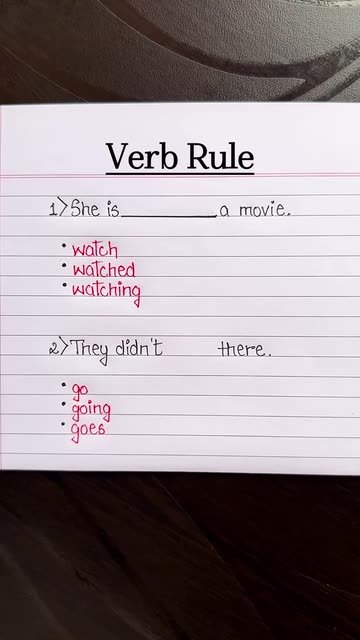 Verb Rule
1> She is__________a movie.
• watch
• watched
• watching
2> They didn't there.
• go
• going
• goes